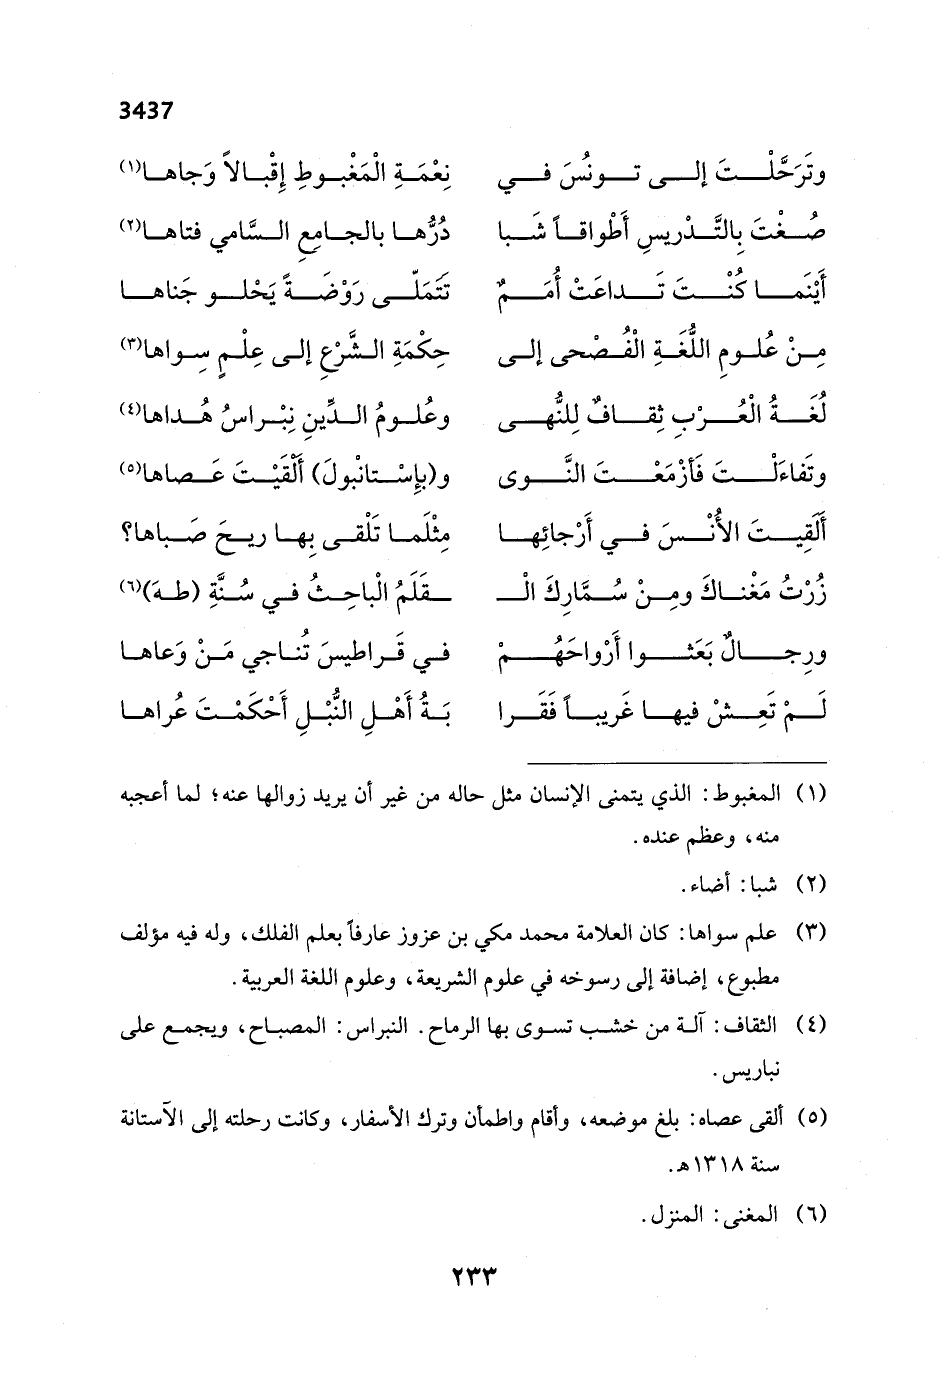 3437
وتَرَحَّلْتَ إلى تونُسَ في نِعْمَةِ الْمَغْبوطِ إقْبالاً وَجاها(١)
صُغْتَ بِالتَّدْريسِ أَطْواقاً شَبا دُرُّها بالجامِعِ السَّامي فتاها(٢)
أَيْنَما كُنْتَ تَداعَتْ أُمَمٌ تَتَمَلّى رَوْضَةً يَحْلو جَناها
مِنْ عُلومِ اللُّغَةِ الْفُصْحى إلى حِكْمَةِ الشَّرْعِ إلى عِلْمٍ سِواها(٣)
لُغَةُ الْعُرْبِ ثِقافٌ لِلنُّهى وعُلومُ الدِّينِ نِبْراسُ هُداها(٤)
وتَفاءَلْتَ فَأَزْمَعْتَ النَّوى و(بِإسْتانْبولَ) أَلْقَيْتَ عَصاها(٥)
أَلَقِيتَ الأُنْسَ في أَرْجائِها مِثْلَما تَلْقى بِها ريحَ صَباها؟
زُرْتُ مَغْناكَ ومِنْ سُمَّارِكَ الْـ ـقَلَمُ الْباحِثُ في سُنَّةِ (طهَ)(٦)
ورِجالٌ بَعَثوا أَرْواحَهُمْ في قَراطيسَ تُناجي مَنْ وَعاها
لَمْ تَعِشْ فيها غَريباً فَقَرا بَةُ أَهْلِ النُّبْلِ أَحْكَمْتَ عُراها
(١) المغبوط: الذي يتمنى الإنسان مثل حاله من غير أن يريد زوالها عنه؛ لما أعجبه
منه، وعظم عنده.
(٢) شبا: أضاء.
(٣) علم سواها: كان العلامة محمد مكي بن عزوز عارفاً بعلم الفلك، وله فيه مؤلف
مطبوع، إضافة إلى رسوخه في علوم الشريعة، وعلوم اللغة العربية.
(٤) الثقاف: آلة من خشب تسوى بها الرماح. النبراس: المصباح، ويجمع على
نباريس.
(٥) ألقى عصاه: بلغ موضعه، وأقام واطمأن وترك الأسفار، وكانت رحلته إلى الآستانة
سنة ١٣١٨هـ.
(٦) المغنى: المنزل.
٢٣٣